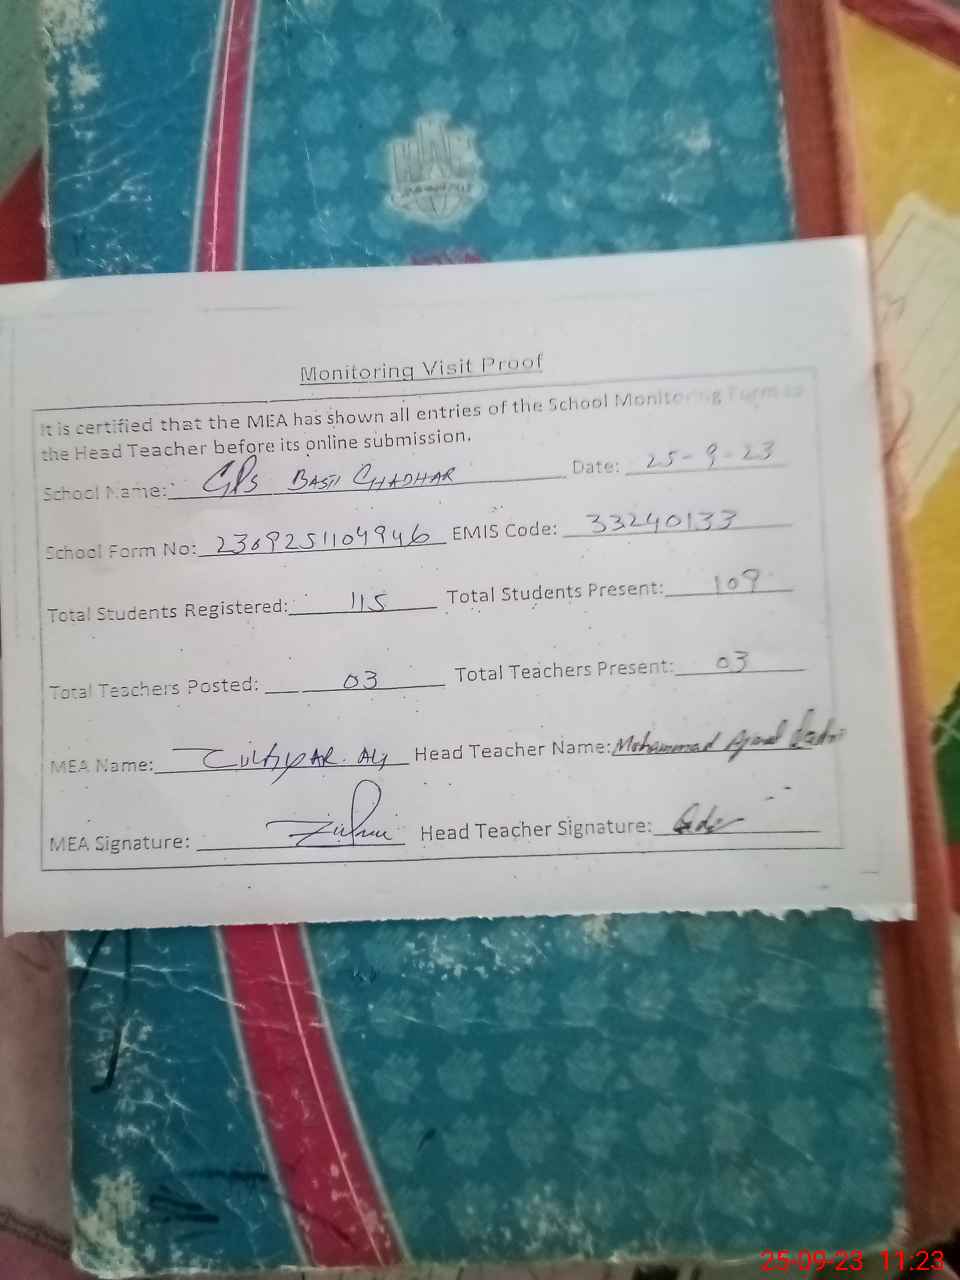 Monitoring Visit Proof
It is certified that the MEA has shown all entries of the School Monitoring Form to
the Head Teacher before its online submission.
School Name: GPS BASTI CHADHAR Date: 25-9-23
School Form No: 2309251104946 EMIS Code: 33240133
Total Students Registered: 115 Total Students Present: 109
Total Teachers Posted: 03 Total Teachers Present: 03
MEA Name: ALI Head Teacher Name: Mohammad Ajmal
MEA Signature: Head Teacher Signature:
25-09-23 11:23